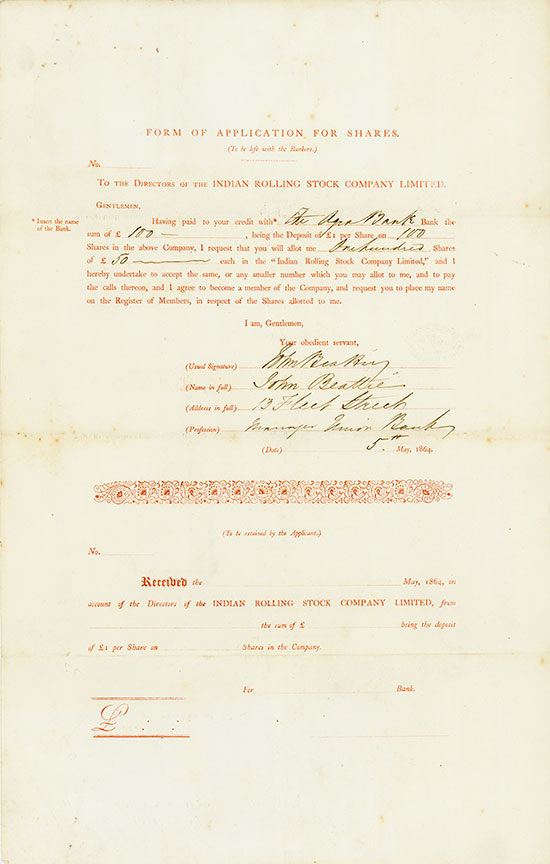 FORM OF APPLICATION FOR SHARES.
(To be left with the Bankers.)
No.
To the Directors of the INDIAN ROLLING STOCK COMPANY LIMITED.
Gentlemen,
* Insert the name
of the Bank.
Having paid to your credit with* The Agra Bank Bank the
sum of £ 100 —, being the Deposit of £1 per Share on 100
Shares in the above Company, I request that you will allot me One hundred Shares
of £ 50 — each in the "Indian Rolling Stock Company Limited," and I
hereby undertake to accept the same, or any smaller number which you may allot to me, and to pay
the calls thereon, and I agree to become a member of the Company, and request you to place my name
on the Register of Members, in respect of the Shares allotted to me.
I am, Gentlemen,
Your obedient servant,
(Usual Signature) John Beattie
(Name in full) John Beattie
(Address in full) 13 Fleet Street
(Profession) Manager Union Bank
(Date) 5th May, 1864.
(To be retained by the Applicant.)
No.
Received the May, 1864, on
account of the Directors of the INDIAN ROLLING STOCK COMPANY LIMITED, from
the sum of £ being the deposit
of £1 per Share on Shares in the Company.
For Bank.
£ : :